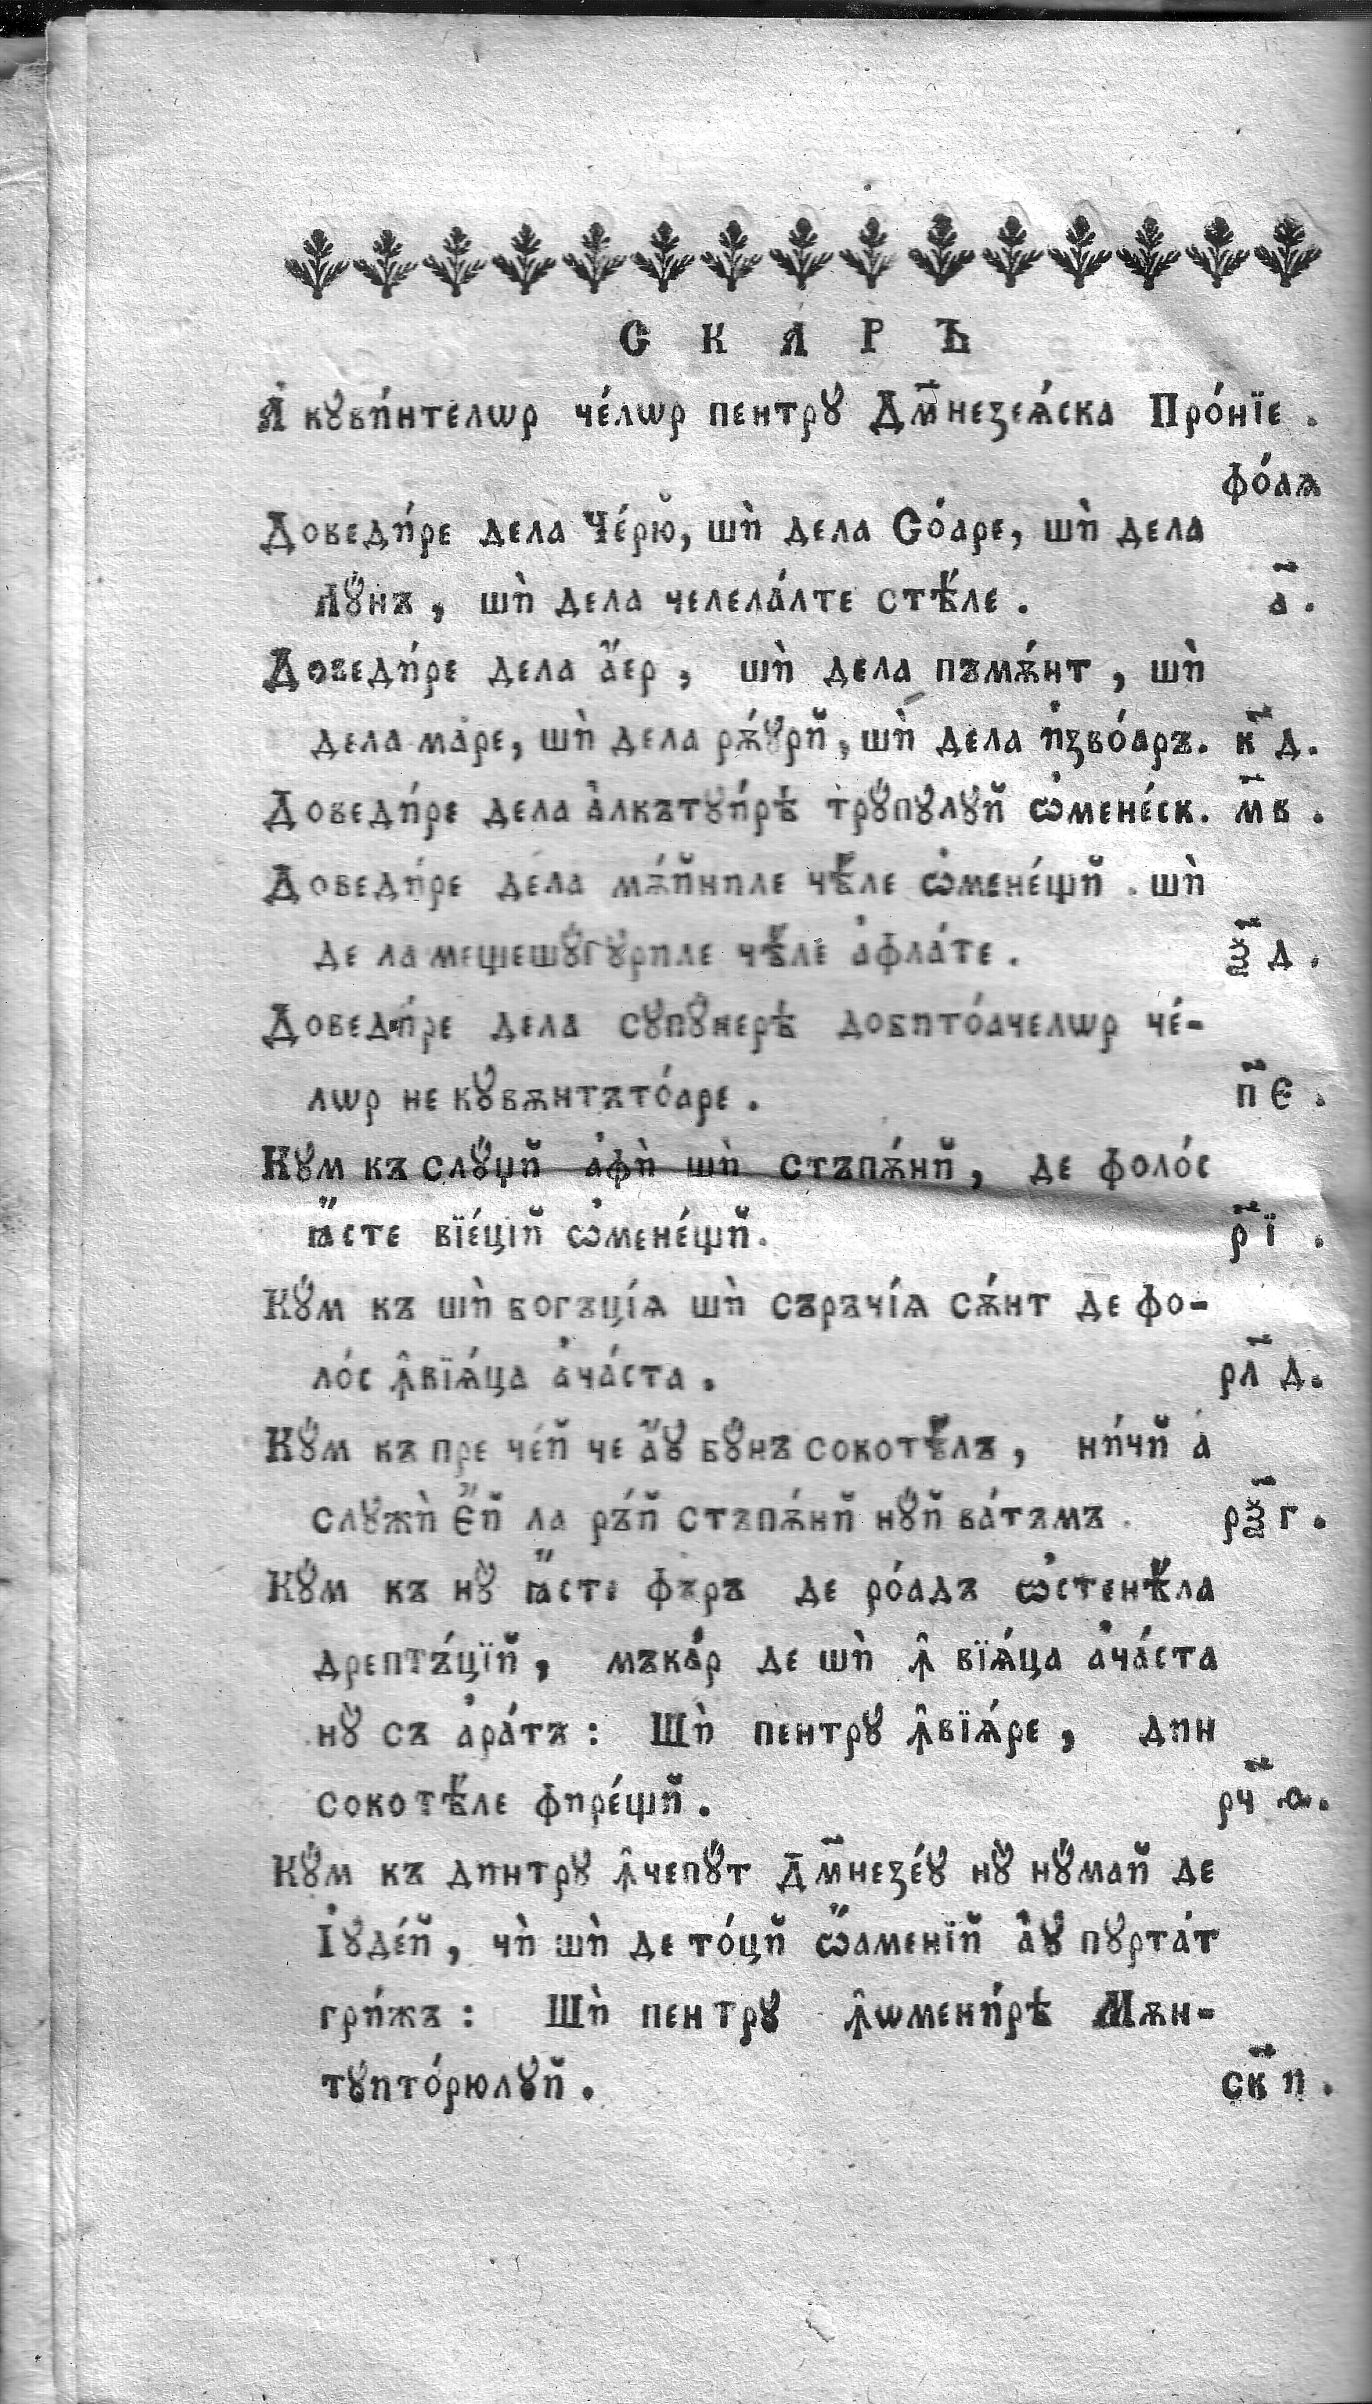 С К А Р Ъ
А҆ кꙋви́нтелѡр че́лѡр пентрꙋ̀ Дм҃незеѧ́ска Про́нїе .
фо́аѧ
Доведи́ре дела Че́рю̆, шѝ дела Со́аре, шѝ дела
Лꙋ́нъ , шѝ дела челела́лте стѣ́ле . а҃ .
Доведи́ре дела а҆́ер , шѝ дела пъмѫ́нт , шѝ
дела ма́ре, шѝ дела рѫ́ꙋрй, шѝ дела и҆зво́аръ. к҃д.
Доведи́ре дела а҆лкътꙋи́рѣ трꙋ́пꙋлꙋй ѡ҆мене́ск. м҃в .
Доведи́ре дела мѫ́йниле чѣ́ле ѡ҆мене́щй . шѝ
де ла мещешꙋ́гꙋриле чѣ́ле а҆фла́те . ѯ҃д .
Доведи́ре дела сꙋпꙋ́нерѣ добито́ачелѡр че́-
лѡр не кꙋвѫнтъто́аре . п҃є .
Кꙋ́м къ слꙋ́цй а҆фѝ шѝ стъпѫ́нй, де фоло́с
ꙗ҆́сте вїе́цїй ѡ҆мене́щй. р҃ї .
Кꙋ́м къ шѝ богъці́ѧ шѝ съръчі́ѧ сѫ́нт де фо-
ло́с ꙟ҆вїѧ́ца а҆ча́ста . рл҃д.
Кꙋ́м къ пре че́й че а҆́ꙋ бꙋ́нъ сокотѣ́лъ , ни́чй а҆
слꙋжѝ є҆́й ла ръ́й стъпѫ́нй нꙋ́й ва́тъмъ . рѯ҃г .
Кꙋ́м къ нꙋ̀ ꙗ҆́сте фъръ де ро́адъ ѡ҆стенѣ́ла
дрептъ́цїй, мъка́р де шѝ ꙟ҆ вїѧ́ца а҆ча́ста
нꙋ̀ съ а҆ра́тъ : Шѝ пентрꙋ ꙟ҆вїѧ́ре , дин
сокотѣ́ле фире́щй . рч҃ѕ.
Кꙋ́м къ динтрꙋ ꙟ҆чепꙋ́т Дм҃незе́ꙋ нꙋ̀ нꙋ́май де
І҆ꙋде́й , чѝ шѝ де то́цй ѡ҆́аменїй а҆ꙋ̀ пꙋрта́т
гри́жъ : Шѝ пентрꙋ ꙟ҆ѡмени́рѣ Мѫн-
тꙋито́рюлꙋ́й . ск҃и .